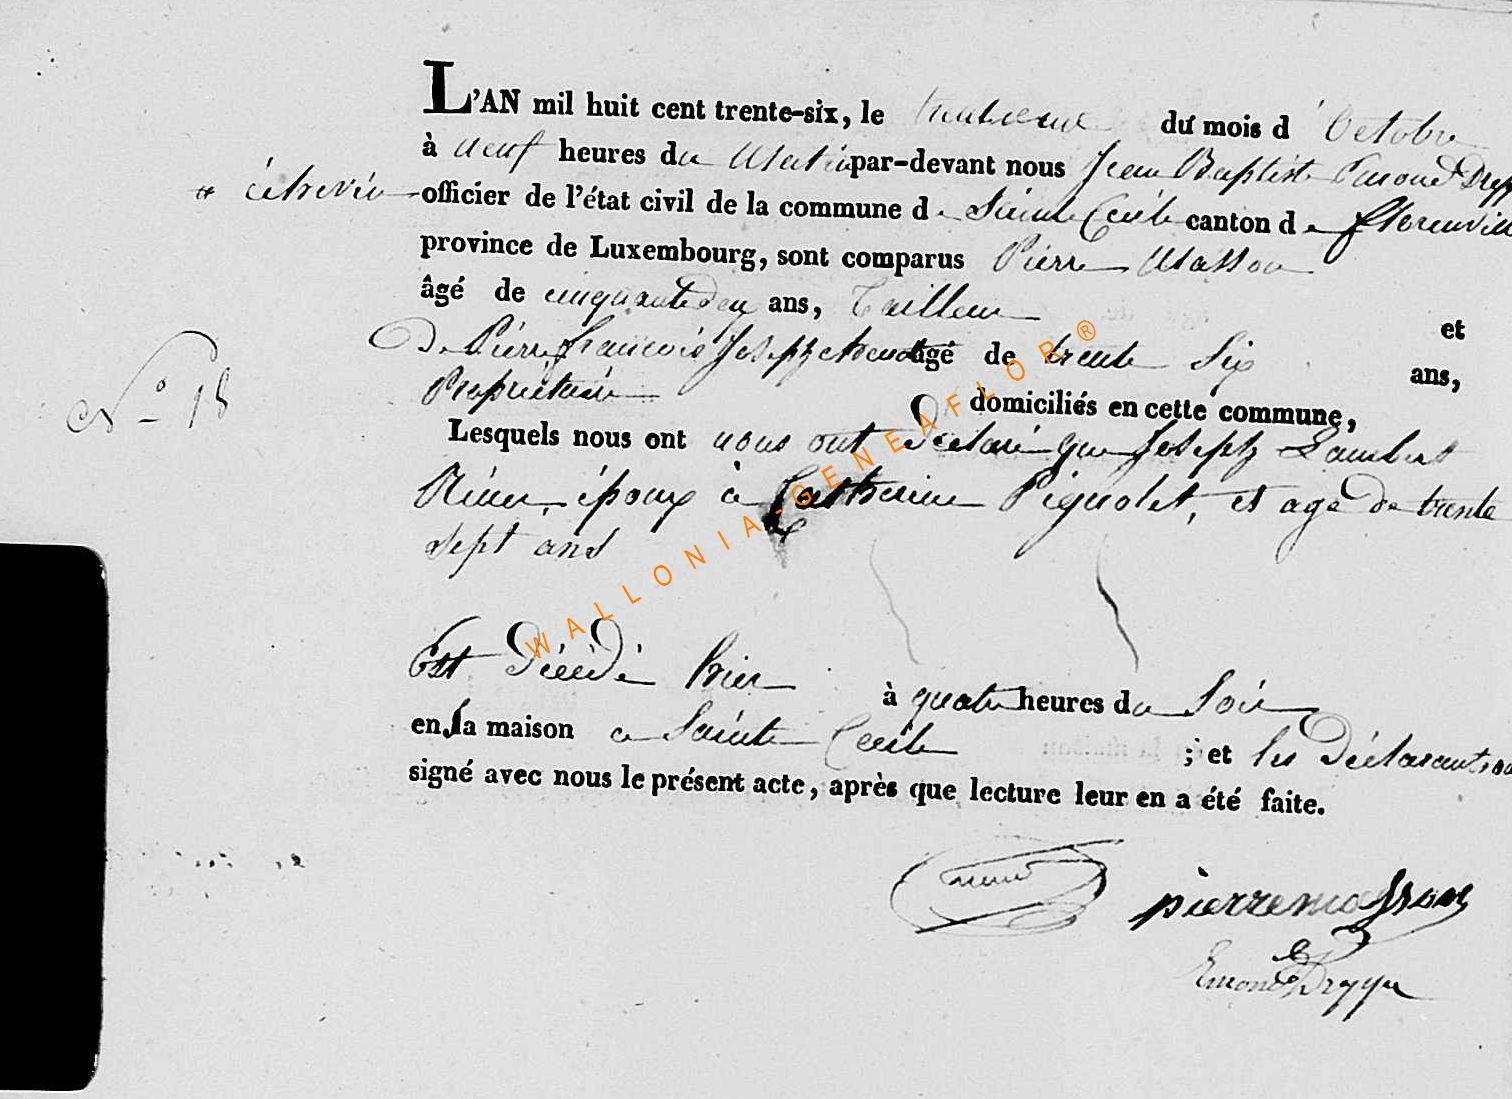 L'AN mil huit cent trente-six, le du mois d'Octobre
à neuf heures du Matin par-devant nous Jean Baptiste Emond
échevin officier de l'état civil de la commune de Sainte Cécile canton de florenville
province de Luxembourg, sont comparus Pierre Masson
âgé de cinquante deux ans, Tailleur et
De Pierre françois Joseph âgé de trente Six ans,
Propriétaire domiciliés en cette commune,
N° 18
Lesquels nous ont nous ont Déclaré que Joseph Lambert
époux à Catherine Pignolet, et agé De trente
sept ans
Est Décédé hier à quatre heures du Soir
en sa maison a Sainte Cecile ; et les Déclarants
signé avec nous le présent acte, après que lecture leur en a été faite.
pierre masson
Emond
WALLONIA-GENEAFLOR®